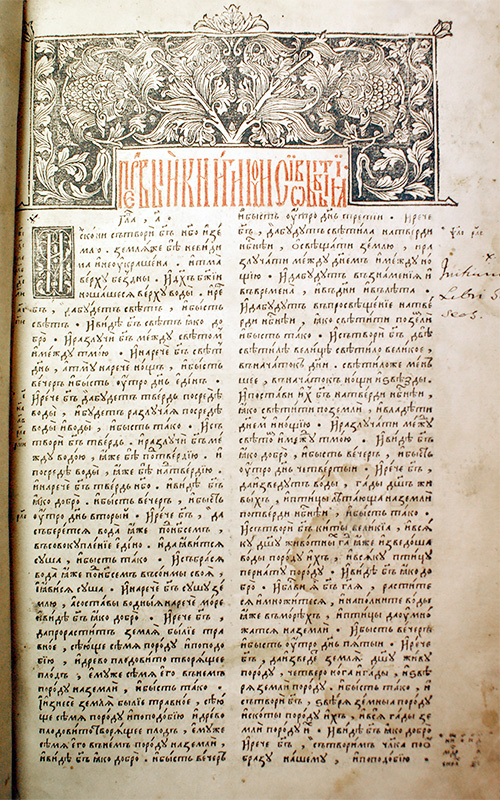 Глава , а҃ .
Искони сътвори бг҃ъ нб҃о и зе
млю . земляже бѣ невиди
ма и неукрашена . и тма
верху бездны . И дх҃ъ бж҃їи
ношашеся верху воды . ирече
бг҃ъ , да будетъ свѣтъ , и бысть
свѣтъ . И видѣ бг҃ъ свѣтъ ꙗко до
бро . И разлучи бг҃ъ между свѣтом
и между тмою . И нарече бг҃ъ свѣтъ
дн҃ь , а тму нарече нощъ , и бысть
вечеръ и бысть оутро дн҃ь единъ .
И рече бг҃ъ да будетъ твердь посредѣ
воды , и будетъ разлучая посредѣ
воды и воды , и бысть тако . И съ
твори бг҃ъ твердь . и разлучи бг҃ъ ме
жду водою , ꙗже бѣ подтвердїю . и
посредѣ воды , ꙗже бѣ надтвердїю .
и нарече бг҃ъ твердь нб҃о . и видѣ бг҃ъ
ꙗко добро . и бысть вечеръ , и бысть
оутро дн҃ь вторый . И рече бг҃ъ , да
съберется вода ꙗже поднб҃сем ,
въсовокупленїе едино . и да ꙗвится
суша , и бысть тако . И събрася
вода ꙗже поднб҃сем въсонмы своя ,
и ꙗвися суша . И нарече бг҃ъ сушу зе
млю , а составы водныя нарече море
и видѣ бг҃ъ ꙗко добро . И рече бг҃ъ ,
да прорастить земля былїе тра
вное , сѣюще сѣмя по роду и по подо
бїю , и древо плодовито творящее
плодъ , емуже сѣмя его в немъ
по роду на земли , и бысть тако .
И изнесе земля былїе травное , сѣю
ще сѣмя по роду и по подобїю и древо
плодовито творящее плодъ , емуже
сѣмя его в немъ по роду на земли ,
и видѣ бг҃ъ ꙗко добро . и бысть вечеръ
и бысть оутро дн҃ь третїи . И рече
бг҃ъ , да будутъ свѣтила на тверди
нб҃нѣи , освѣщати землю , и ра
злучати между днемъ и между но
щїю . И да будутъ въ знаменїя и
въ времена , и въ дни и в лѣта .
И да будутъ въ просвѣщенїе на тве
рди нб҃нѣи , ꙗко свѣтити по земли
и бысть тако . И сътвори бг҃ъ двѣ
свѣтилѣ велицѣ свѣтило великое ,
въ начатокъ дни . свѣтиложе мен
шее , въ начатокъ нощи и ѕвѣзды .
И постави их бг҃ъ на тверди нб҃нѣи ,
ꙗко свѣтити по земли , и владѣти
днем и нощїю . И разлучати между
свѣтом и между тмою . И видѣ бг҃ъ
ꙗко добро . и бысть вечеръ , и бысть
оутро дн҃ь четвертыи . И рече бг҃ъ ,
да изведутъ воды , гады дш҃ъ жи
выхъ , и птицы лѣтающа на земли
по тверди нб҃нѣи , и бысть тако .
И сътвори бг҃ъ киты великїя , и вся
ку дш҃у животны гад ꙗже изведоша
воды по роду ихъ , и всяку птицу
пернату по роду . И видѣ бг҃ъ ꙗко до
бро . и блг҃ви я бг҃ъ гл҃я , растите
ся и множитеся , и наполните воды
ꙗже въ морехъ , и птицы да оумно
жатся на земли . И бысть вечеръ
и бысть оутро дн҃ь пятыи . И рече
бг҃ъ , да изведе земля дш҃у живу
по роду , четверонога и гады , и ѕвѣ
ря земли по роду , и бысть тако , и
сътвори бг҃ъ , ѕвѣря земныя по роду
и скоты по роду ихъ , и вся гады зе
мли по роду . И видѣ бг҃ъ ꙗко добро
И рече бг҃ъ , сътворим чл҃ка по о
бразу нашему , и по подобїю .